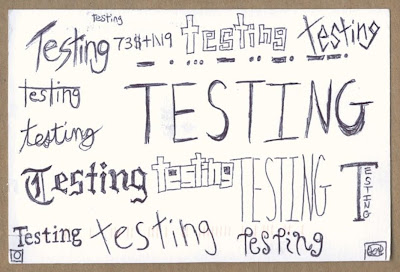 Testing
Testing 73$+N19 testing testing
testing
TESTING
testing
Testing testing TESTING TESTING
Testing testing testing